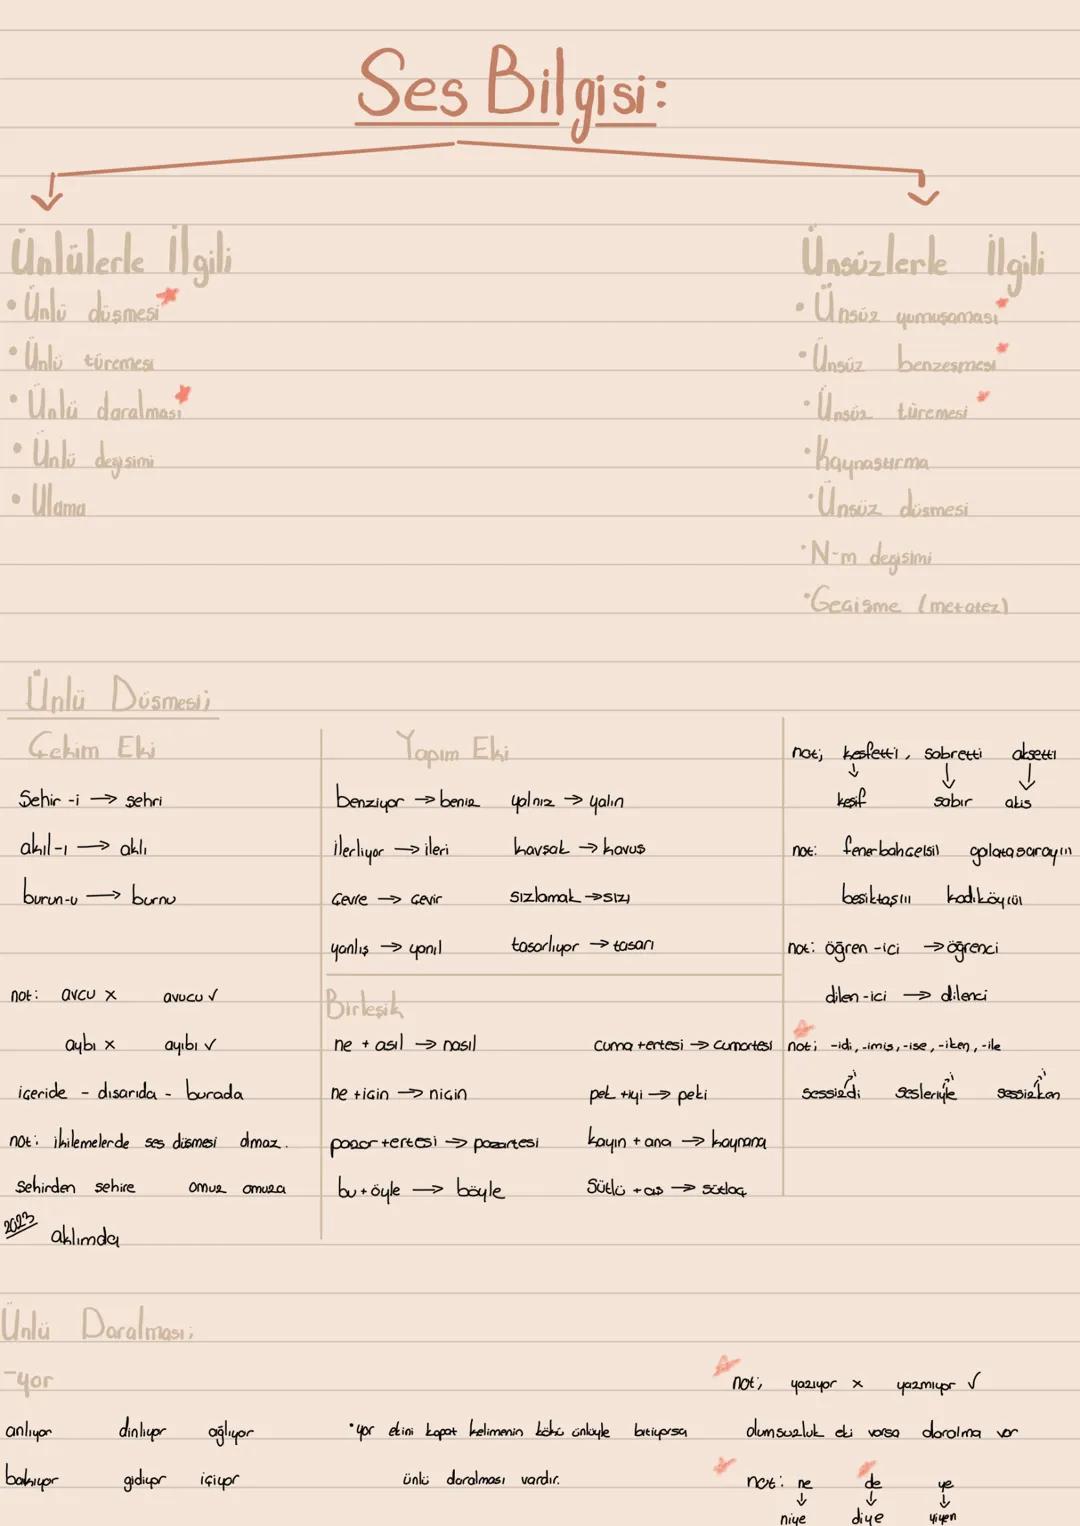 Ses Bilgisi:
Ünlülerle İlgili
• Ünlü düşmesi
• Ünlü türemesi
• Ünlü daralması
• Ünlü değişimi
• Ulama
Ünsüzlerle İlgili
• Ünsüz yumuşaması
• Ünsüz benzeşmesi
• Ünsüz türemesi
• Kaynaştırma
• Ünsüz düşmesi
• N-m değişimi
• Geçişme (metatez)
Ünlü Düşmesi;
Çekim Eki
Şehir -i → şehri
akıl-ı → aklı
burun-u → burnu
not: avcu x avucu ✓
aybı x ayıbı ✓
içeride - dışarıda - burada
not: ikilemelerde ses düşmesi olmaz.
Şehirden şehire omuz omuza
2023 aklımda
Yapım Eki
benziyor → beniz yalnız → yalın
ilerliyor → ileri kavşak → kavuş
çevre → çevir sızlamak → sızı
yanlış → yanıl tasarlıyor → tasarı
Birleşik
ne + asıl → nasıl cuma + ertesi → cumartesi
ne + için → niçin pek + iyi → peki
pazar + ertesi → pazartesi kayın + ana → kaynana
bu + öyle → böyle Sütlü + aş → sütlaç
not; keşfetti, sabretti aksetti
↓ ↓ ↓
keşif sabır akis
not: fenerbahçelsil galatasarayın
beşiktaşııı kadıköycüı
not: öğren -ici → öğrenci
dilen -ici → dilenci
not; -idi, -imiş, -ise, -iken, -ile
sessizdi sesleriyle sessizken
Ünlü Daralması;
-yor
anlıyor dinliyor ağlıyor
bakıyor gidiyor içiyor
• yor ekini kapat kelimenin kökü ünlüyle bitiyorsa
ünlü daralması vardır.
not; yazıyor x yazmıyor ✓
olumsuzluk eki varsa daralma var
not: ne de ye
↓ ↓ ↓
niye diye yiyen